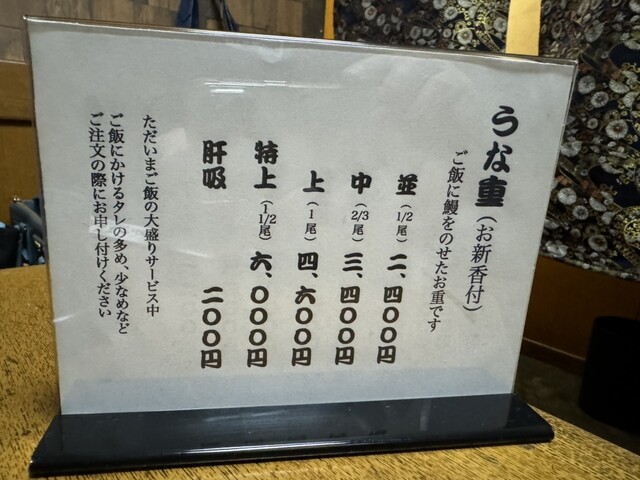 うな重(お新香付)
ご飯に鰻をのせたお重です
並(1/2尾)二、四〇〇円
中(2/3尾)三、四〇〇円
上(1尾)四、六〇〇円
特上(1 1/2尾)六、〇〇〇円
肝吸 二〇〇円
ただいまご飯の大盛りサービス中
ご飯にかけるタレの多め、少なめなど
ご注文の際にお申し付けください